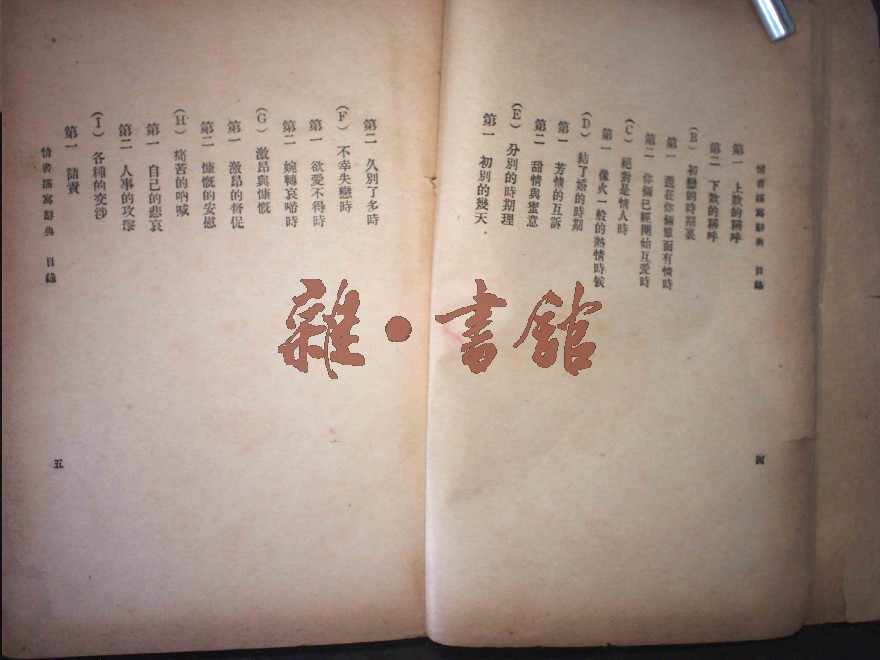 情書描寫辭典 目錄
第一 上款的稱呼
第二 下款的稱呼
(B) 初戀的時期裏
第一 還在你倆單面有情時
第二 你倆已經開始互愛時
(C) 絕對是情人時
第一 像火一般的熱情時候
(D) 結了婚的時期
第一 芳情的互訴
第二 甜情與蜜意
(E) 分別的時期理
第一 初別的幾天
四
第二 久別了多時
(F) 不幸失戀時
第一 欲愛不得時
第二 婉轉哀啼時
(G) 激昂與慷慨
第一 激昂的督促
第二 慷慨的安慰
(H) 痛苦的吶喊
第一 自己的悲哀
第二 人事的攻擊
(I) 各種的交涉
第一 詰責
情書描寫辭典 目錄
五
雜·書館